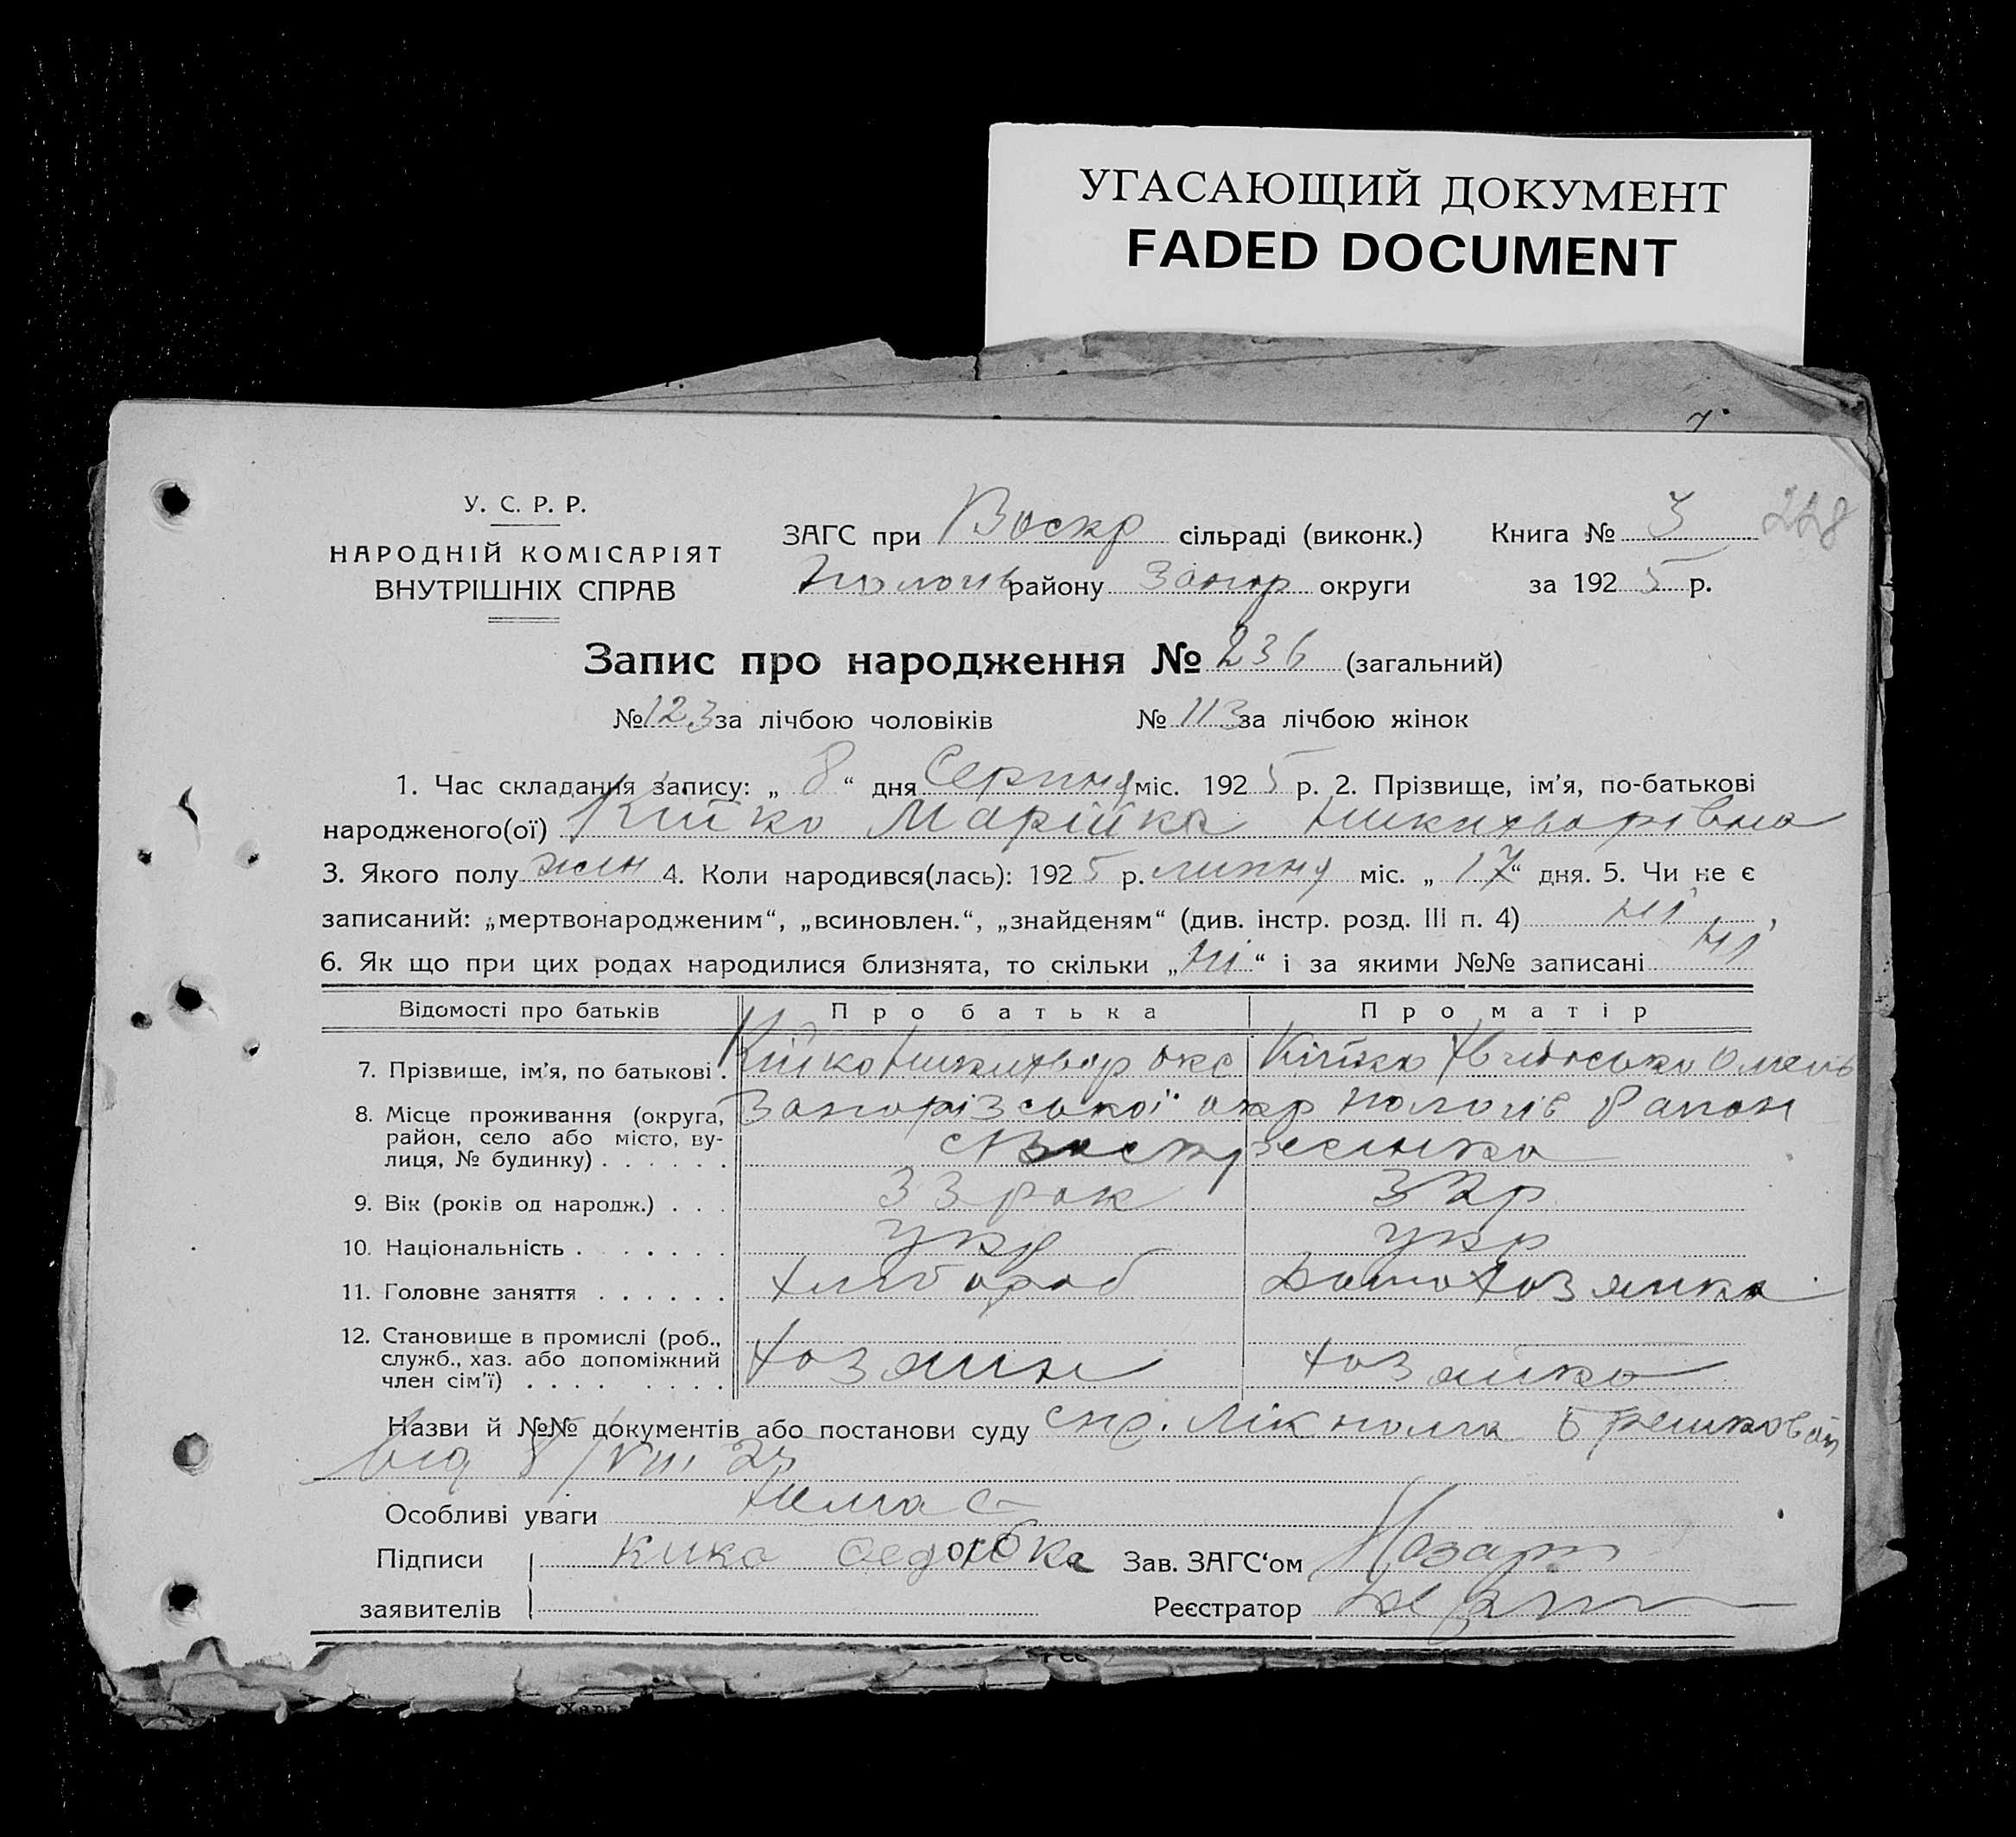 УГАСАЮЩИЙ ДОКУМЕНТ
FADED DOCUMENT
У. С. Р. Р.
НАРОДНІЙ КОМІСАРІЯТ
ВНУТРІШНІХ СПРАВ
ЗАГС при Воскр сільраді (виконк.)
Пологів району Запор округи
Книга № 3 228
за 1925 р.
Запис про народження № 236 (загальний)
№ 123 за лічбою чоловіків № 113 за лічбою жінок
1. Час складання запису: „ 8 “ дня Серпня міс. 1925 р. 2. Прізвище, ім’я, по-батькові
народженого(ої) Кійко Марійка Никихворівна
3. Якого полу жін 4. Коли народився(лась): 1925 р. липня міс. „ 17 “ дня. 5. Чи не є
записаний: „мертвонародженим“, „всиновлен.“, „знайденям“ (див. інстр. розд. III п. 4) ні ,
6. Як що при цих родах народилися близнята, то скільки „ ні “ і за якими №№ записані ні
Відомості про батьків Про батька Про матір
7. Прізвище, ім’я, по батькові . Кійко Никихвор Окс Кійко Омель
8. Місце проживання (округа, район, село або місто, вулиця, № будинку) . . . . . . Запорізської окр Пологів Район
с Воскресенка
9. Вік (років од народж.) . . . 33 рок 32 р
10. Національність . . . . . . укр укр
11. Головне заняття . . . . . . хлібороб Домохозяйка
12. Становище в промислі (роб., служб., хаз. або допоміжний член сім’ї) . . . . . . . . хозяин хозяйка
Назви й №№ документів або постанови суду спр.
від 8/VIII 25
Особливі уваги Нема є
Підписи Кико Зав. ЗАГС‘ом Назар
заявителів Реєстратор